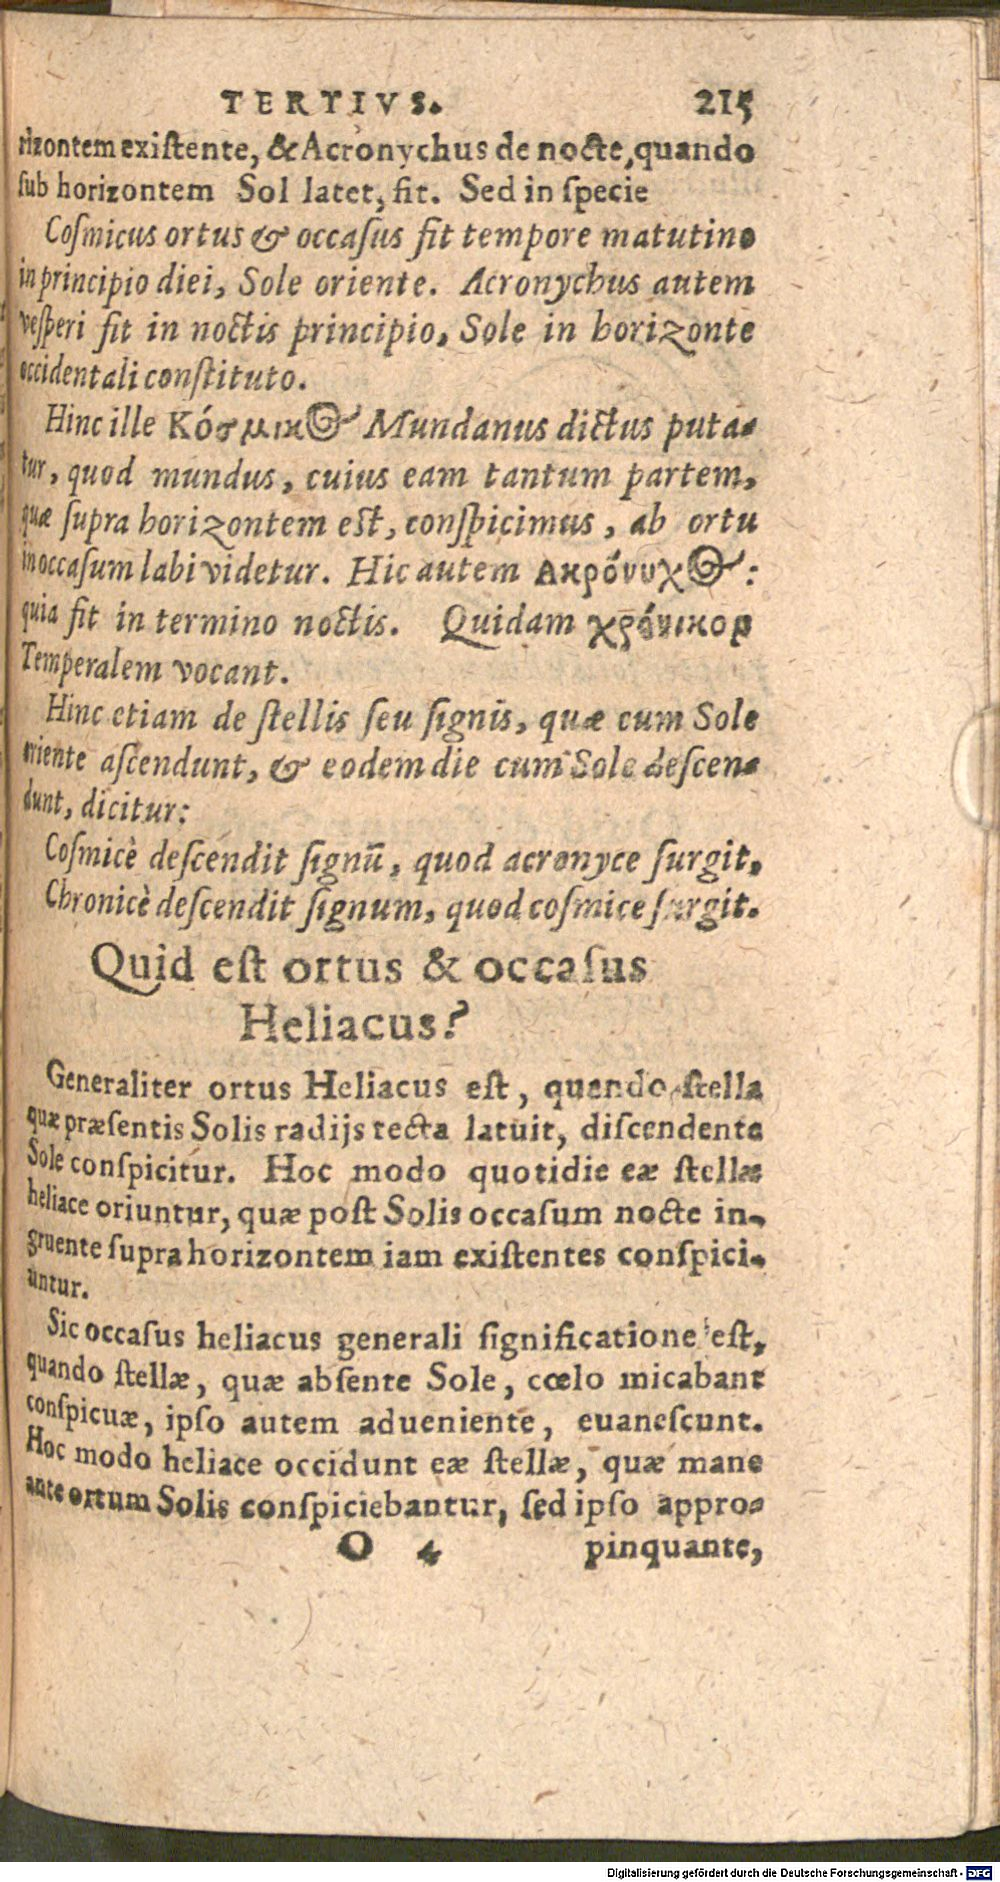 TERTIVS. 215
rizontem existente, & Acronychus de nocte, quando
sub horizontem Sol latet, fit. Sed in specie
Cosmicus ortus & occasus fit tempore matutino
in principio diei, Sole oriente. Acronychus autem
vesperi fit in noctis principio, Sole in horizonte
occidentali constituto.
Hinc ille Κόσμικος Mundanus dictus puta-
tur, quod mundus, cuius eam tantum partem,
quæ supra horizontem est, conspicimus, ab ortu
in occasum labi videtur. Hic autem Ακρόνυχος:
quia fit in termino noctis. Quidam χρόνικον
Temperalem vocant.
Hinc etiam de stellis seu signis, quæ cum Sole
oriente ascendunt, & eodem die cum Sole descen-
dunt, dicitur:
Cosmicè descendit signū, quod acronyce surgit,
Chronicè descendit signum, quod cosmice surgit.
Quid est ortus & occasus
Heliacus?
Generaliter ortus Heliacus est, quando stella
quæ præsentis Solis radijs tecta latuit, discendente
Sole conspicitur. Hoc modo quotidie eæ stellæ
heliace oriuntur, quæ post Solis occasum nocte in-
gruente supra horizontem iam existentes conspici-
untur.
Sic occasus heliacus generali significatione est,
quando stellæ, quæ absente Sole, cœlo micabant
conspicuæ, ipso autem adueniente, euanescunt.
Hoc modo heliace occidunt eæ stellæ, quæ mane
ante ortum Solis conspiciebantur, sed ipso appro-
O 4 pinquante,
Digitalisierung gefördert durch die Deutsche Forschungsgemeinschaft - DFG